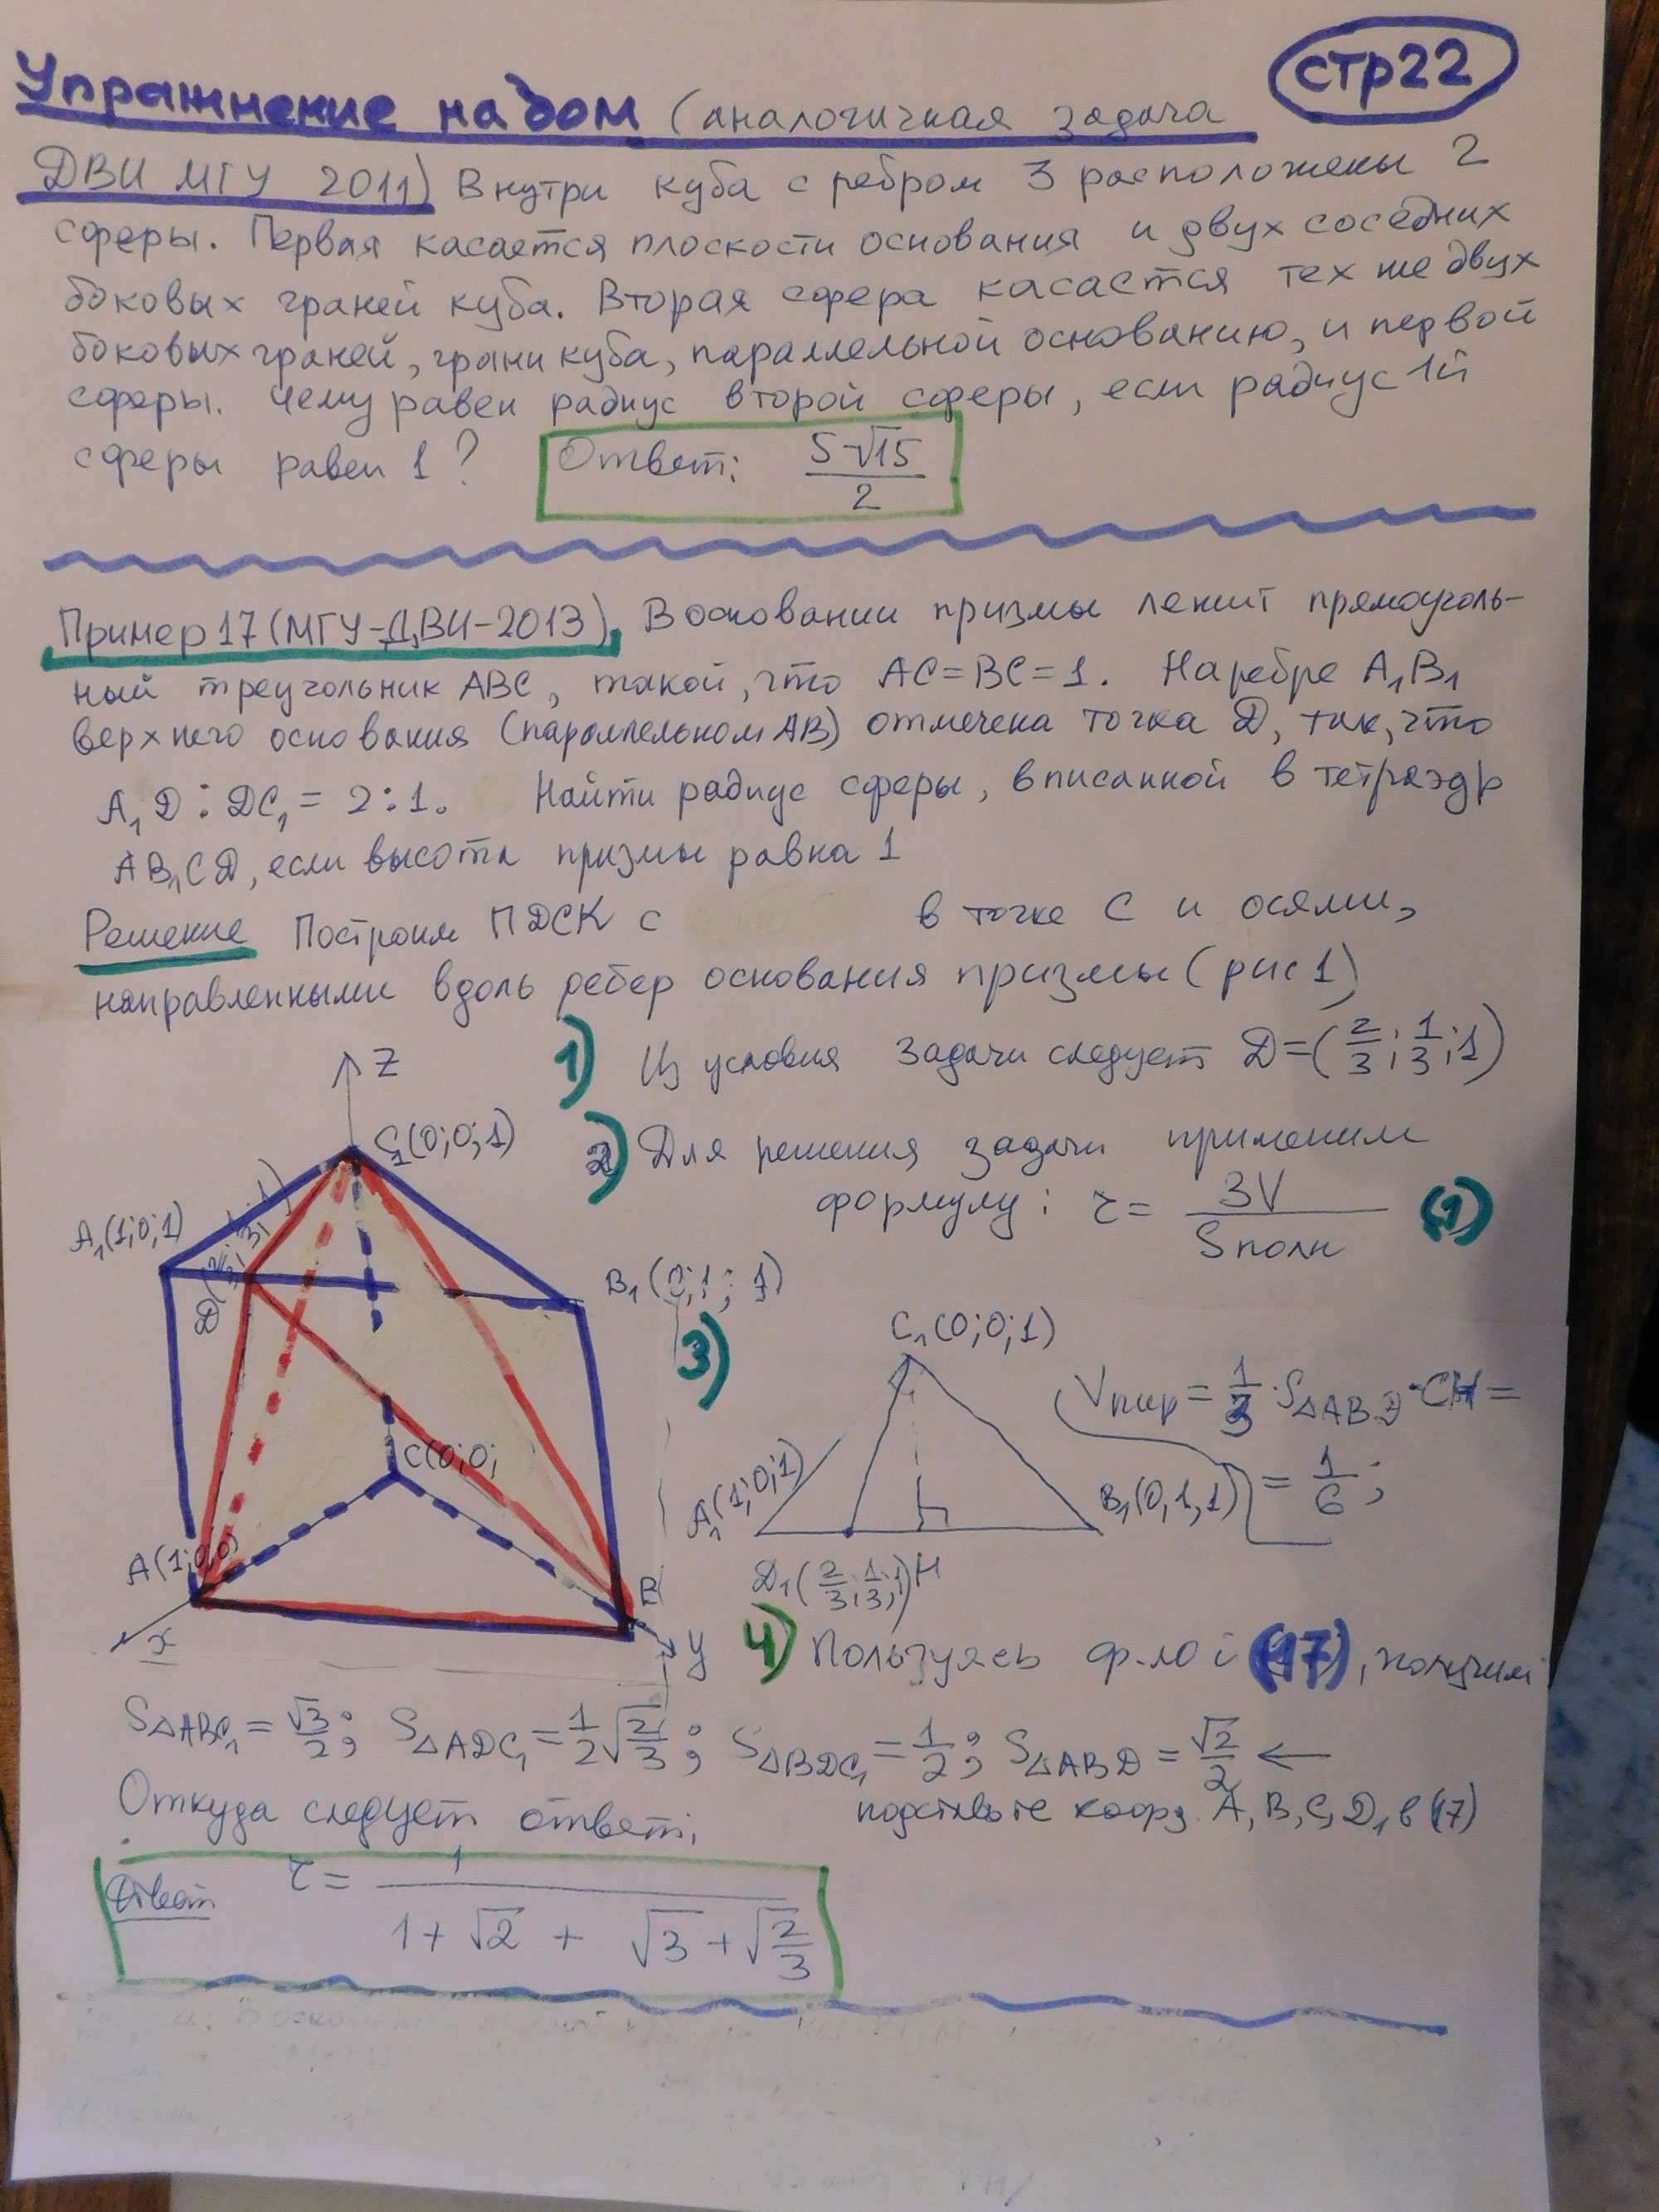 Упражнение на дом (аналогичная задача
стр 22
ДВИ МГУ 2011) Внутри куба с ребром 3 расположены 2
сферы. Первая касается плоскости основания и двух соседних
боковых граней куба. Вторая сфера касается тех же двух
боковых граней, грани куба, параллельной основанию, и первой
сферы. Чему равен радиус второй сферы, если радиус 1й
сферы равен 1?
Ответ: (5-√15)/2
Пример 17 (МГУ-ДВИ-2013). В основании призмы лежит прямоуголь-
ный треугольник ABC, такой, что AC=BC=1. На ребре A₁B₁
верхнего основания (параллельном AB) отмечена точка D, так, что
A₁D : DC₁ = 2:1. Найти радиус сферы, вписанной в тетраэдр
AB₁CD, если высота призмы равна 1
Решение Построим ПДСК с в точке C и осями,
направленными вдоль ребер основания призмы (рис 1)
1) Из условия задачи следует D=(2/3; 1/3; 1)
2) Для решения задачи применим
формулу: r = 3V/Sполн (1)
z
C₁(0;0;1)
A₁(1;0;1)
D(2/3; 1/3; 1)
B₁(0;1;1)
C(0;0;
A(1;0;0)
B
x
y
3)
C₁(0;0;1)
A₁(1;0;1)
B₁(0,1,1)
D₁(2/3; 1/3; 1)
H
Vпир = 1/3 · S△ABD · CH =
= 1/6;
4) Пользуясь ф-лой (17), получим
S△ABC₁ = √3/2; S△ADC₁ = 1/2 √(2/3); S△BDC₁ = 1/2; S△ABD = √2/2 ←
Откуда следует ответ: подставьте коорд. A, B, C, D₁ в (17)
Ответ r = 1/(1+√2 + √3 + √(2/3))